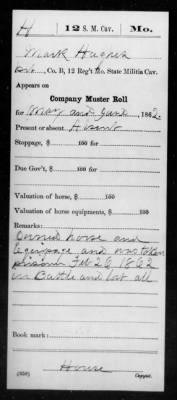 H 12 S. M. Cav. Mo.
Mark Hughes
Pvt., Co. B, 12 Reg't Mo. State Militia Cav.
Appears on
Company Muster Roll
for May and June, 1862.
Present or absent Absent
Stoppage, $ 100 for
Due Gov't, $ 100
Valuation of horse, $ 100
Valuation of horse equipments, $ 100
Remarks:
Owned horse and
equipage and was taken
prisoner Feb 26 1862
in Battle and lost all
Book mark:
House
(358) Copyist.